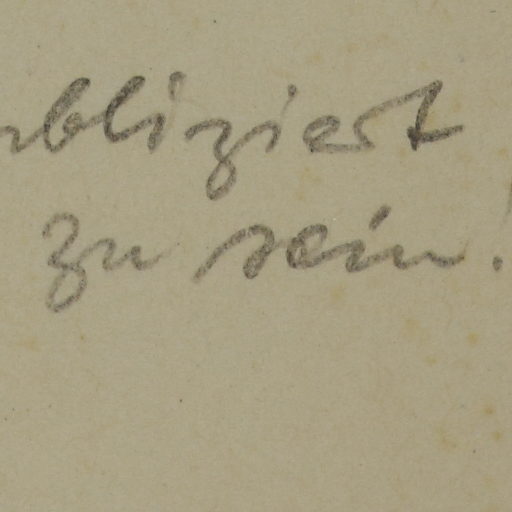 ubliziert
zu sein!